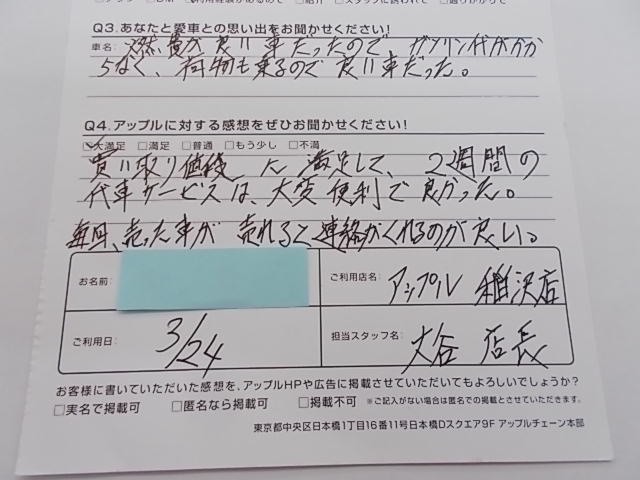 Q3.あなたと愛車との思い出をお聞かせください!
車名: 燃費が良い車だったので、ガソリン代がかか
らなく、荷物も乗るので良い車だった。
Q4.アップルに対する感想をぜひお聞かせください!
☑大満足 □満足 □普通 □もう少し □不満
買い取り値段に満足して、2週間の
代車サービスは、大変便利で良かった。
毎回、売った車が売れると連絡がくれるのが良い。
お名前:
ご利用店名: アップル 稲沢店
ご利用日: 3/24
担当スタッフ名: 大谷 店長
お客様に書いていただいた感想を、アップルHPや広告に掲載させていただいてもよろしいでしょうか?
□実名で掲載可 □匿名なら掲載可 □掲載不可 ※ご記入がない場合は匿名での掲載とさせていただきます。
東京都中央区日本橋1丁目16番11号日本橋Dスクエア9F アップルチェーン本部